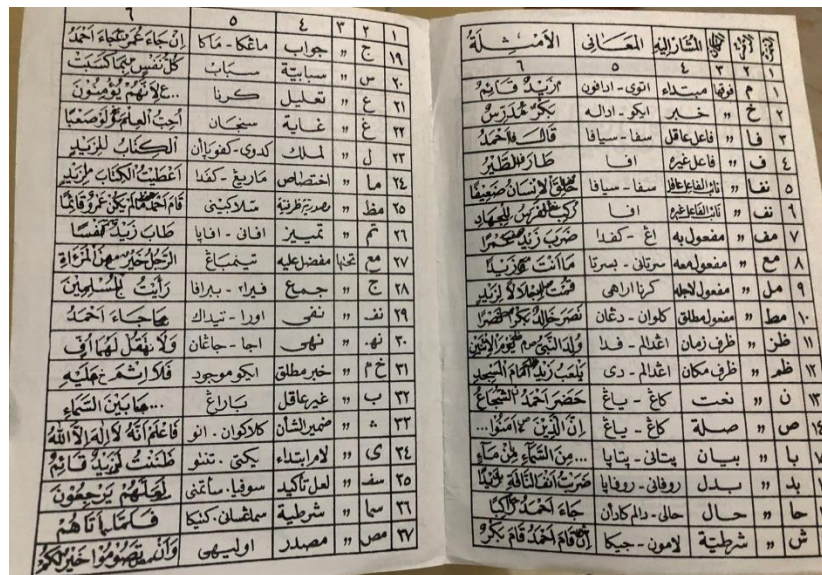 النمرة الرمز المكان المشار إليه المعانى الأمثلة
١ ٢ ٣ ٤ ٥ ٦
١ م فوقها مبتداء اتوى - ادافون زيد قائم
٢ خ " خبر ايكو - اداله بكر مدرس
٣ فا " فاعل عاقل سفا - سيافا قال احمد
٤ ف " فاعل غيره افا طار الطير
٥ نفا " نائب الفاعل عاقل سفا - سيافا خلق الإنسان ضعيفا
٦ نف " نائب الفاعل غيره افا ركب الفرس للجهاد
٧ مف " مفعول به اغ - كفدا ضرب زيد عمرا
٨ مع " مفعول معه سرتاني - بسرتا ما انت وزيدا
٩ مل " مفعول لاجله كرنا اراهى قمت اجلالا لزيد
١٠ مط " مفعول مطلق كلوان - دڠان نصر خالد بكر نصرا
١١ ظز " ظرف زمان اغدالم - فدا ولد النبي يوم الإثنين
١٢ ظم " ظرف مكان اغدالم - دى يلعب زيد امام المسجد
١٣ ن " نعت كاغ - ياغ حضر احمد الشجاع
١٤ ص " صلة كاغ - ياغ ان الذين ءامنوا...
با " بيان پتانى - پتاپا ...من السماء من ماء
بد " بدل روفانى - روفاپا ضربت انفا الناقة زيدا
حا " حال حالى - دالم كادأن جاء احمد راكبا
ش " شرطية لامون - جيكا إن قام احمد قام بكر
١ ٢ ٣ ٤ ٥ ٦
١٩ ج " جواب ماڠكا - ماكا إن جاء عمر فجاء احمد
٢٠ س " سببية سباب كل نفس بما كسبت
٢١ ع " تعليل كرنا ...لانهم يؤمنون
٢٢ غ " غاية سنجان احب العلم ولو صعبا
٢٣ ل " لملك كدوى - كفوپاأن الكتاب لزيد
٢٤ ما " اختصاص ماريغ - كفدا اعطيت الكتاب لزيد
٢٥ مظ " مصدرية ظرفية سلاكينى قام احمد مالم يكن عمرو قائما
٢٦ تم " تمييز افانى - افاپا طاب زيد نفسا
٢٧ مع تحتها مفضل عليه تينمباغ الرجل خير من المرءاة
٢٨ ج " جمع فيراء - ببرافا رأيت المسلمين
٢٩ نف " نفى اورا - تيداك ما جاء احمد
٣٠ نه " نهى اجا - جاڠان ولا تقل لهما اف
٣١ خ م " خبر مطلق ايكو موجود فلا اثم عليه
٣٢ ب " غير عاقل باراغ ...ما بين السماء
٣٣ ش " ضمير الشأن كلاكوان . انو فاعلم انه لا اله الا الله
٣٤ ى " لام ابتداء يكتى . تنتو ظننت لزيد قائم
٣٥ سف " لعل تأكيد سوفيا . سأتمنى لعلهم يرجعون
٣٦ سما " شرطية سماڠسانى . كتيكا فلما اتاهم
٣٧ مص " مصدر اوليهى وان تصوموا خير لكم